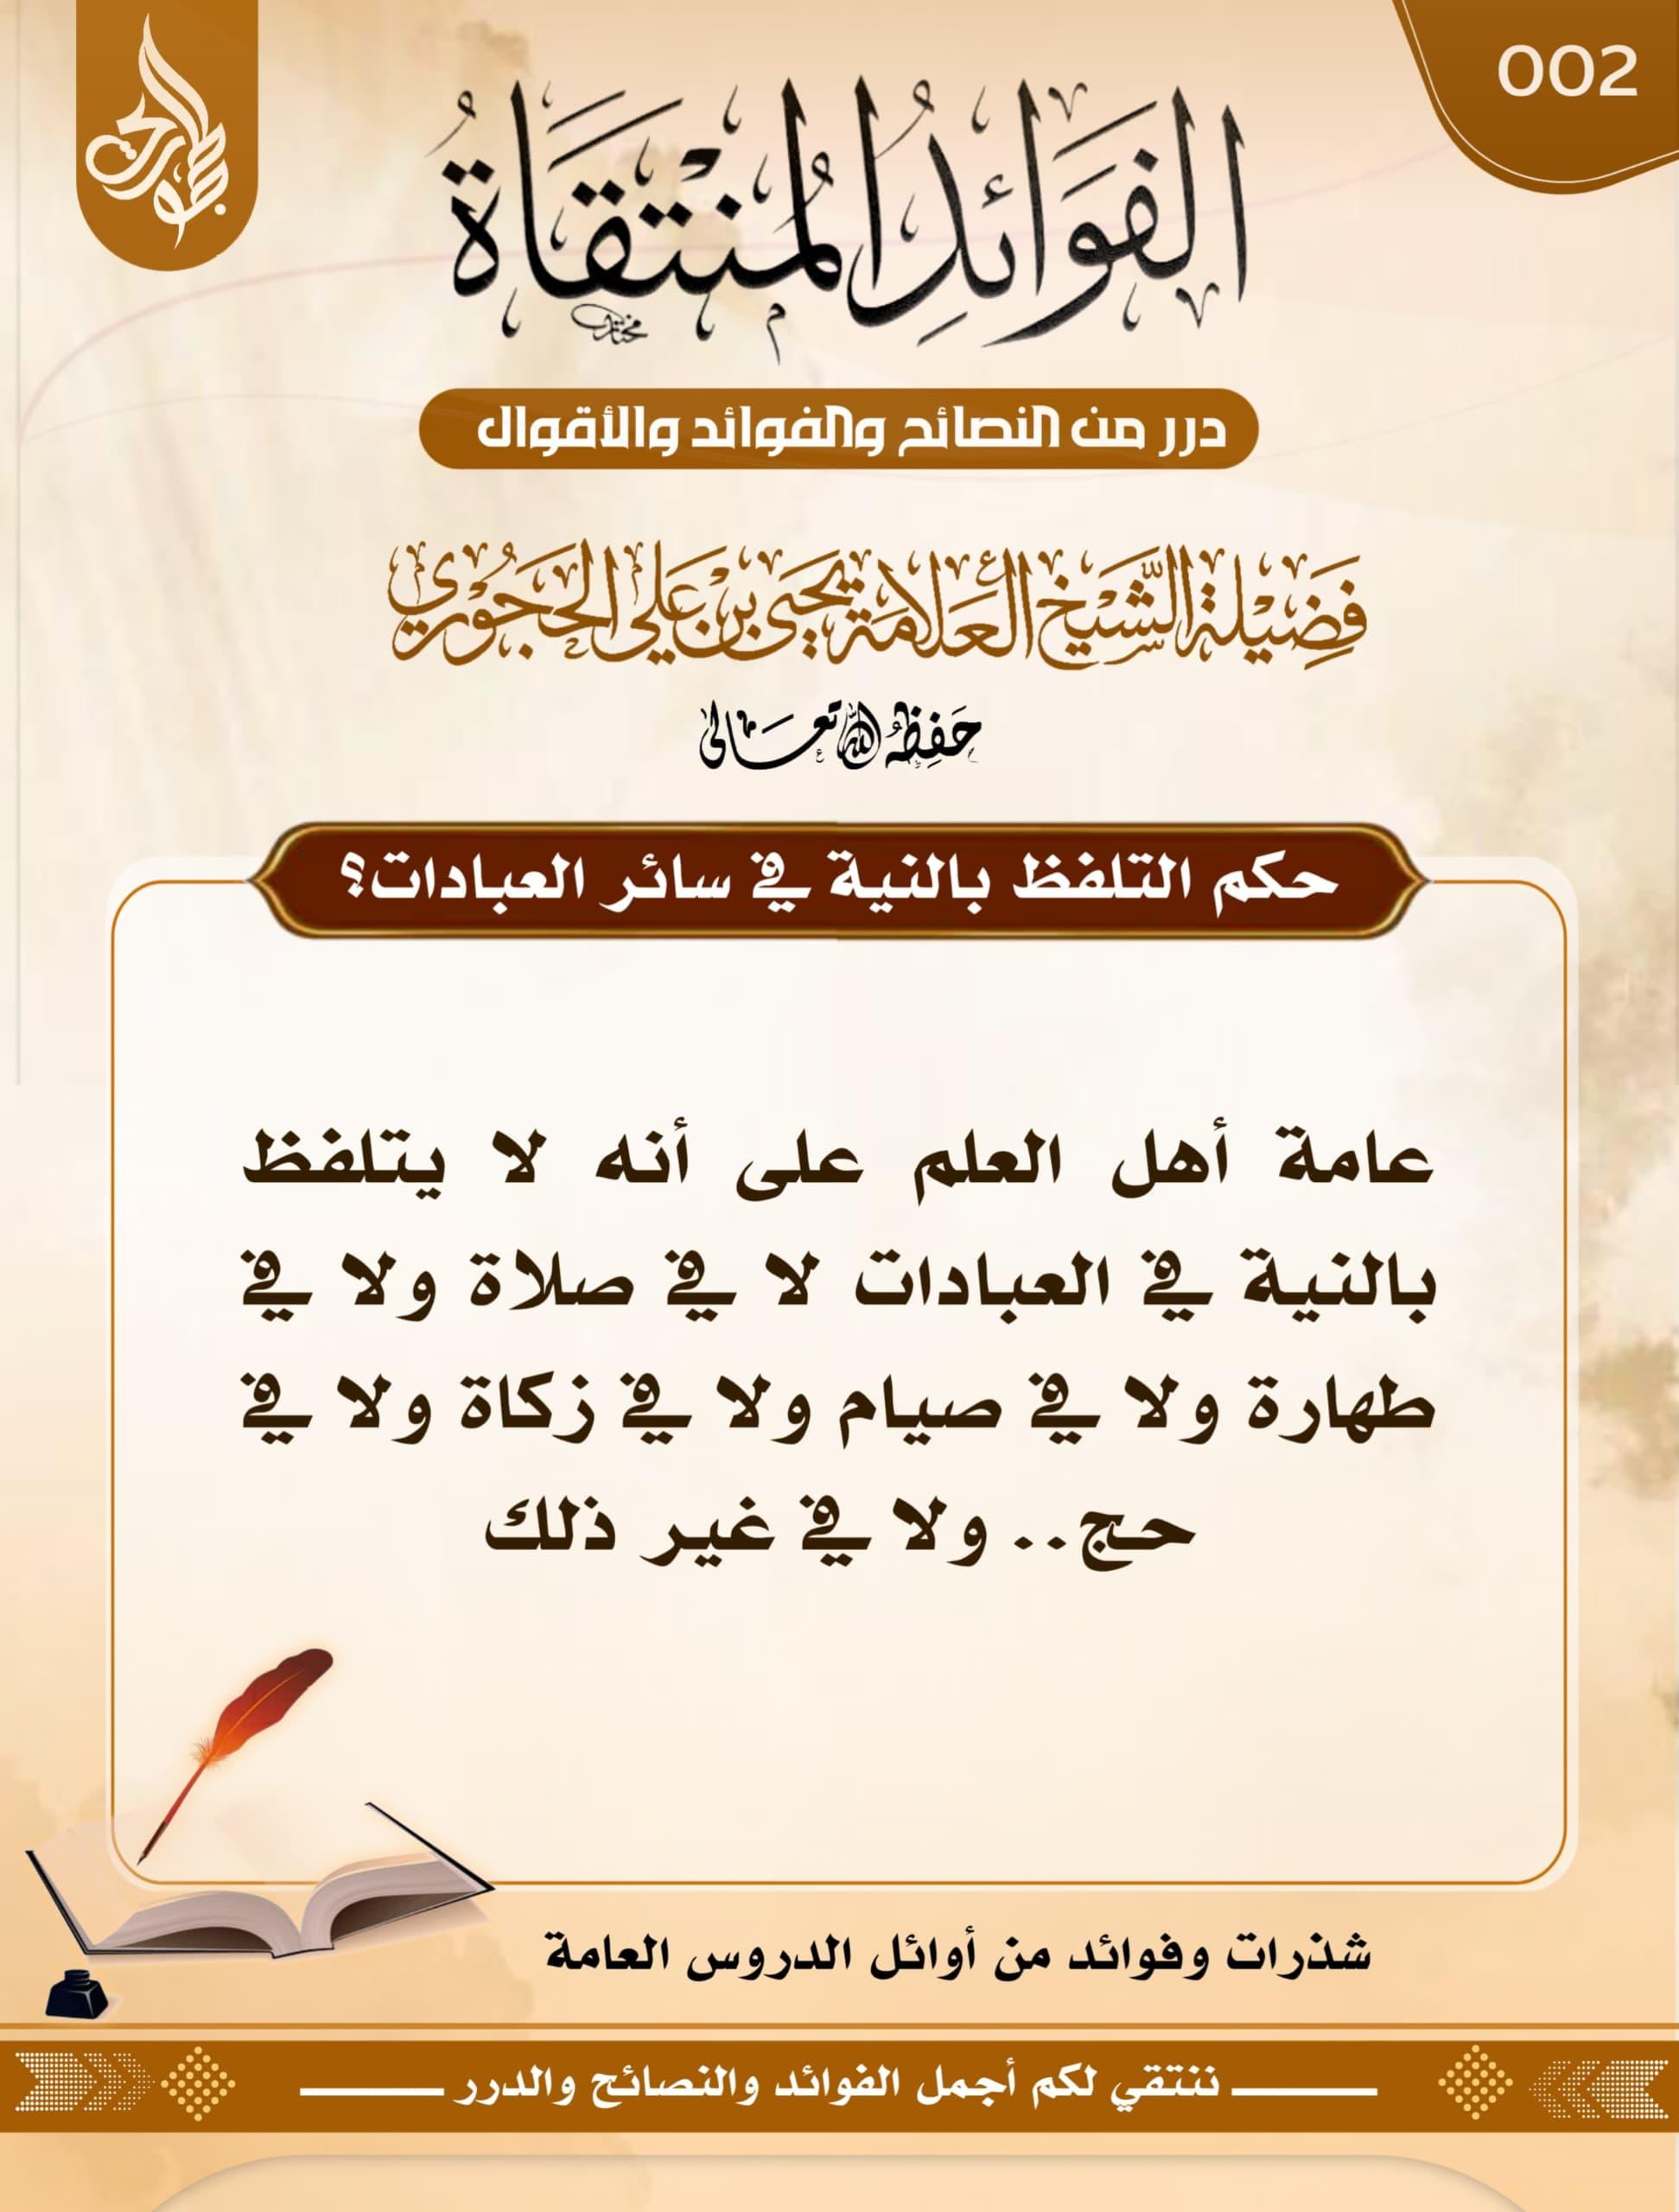 002
الفَوَائدُ المُنتَقَاةُ
درر من النصائح والفوائد والأقوال
فَضِيْلة الشَّيْخ العَلَّامَة يَحْيَى بْن عَلي الحَجُوْرِي
حَفِظَهُ اللهُ تعَالى
حكم التلفظ بالنية في سائر العبادات؟
عامة أهل العلم على أنه لا يتلفظ
بالنية في العبادات لا في صلاة ولا في
طهارة ولا في صيام ولا في زكاة ولا في
حج.. ولا في غير ذلك
شذرات وفوائد من أوائل الدروس العامة
ننتقي لكم أجمل الفوائد والنصائح والدرر